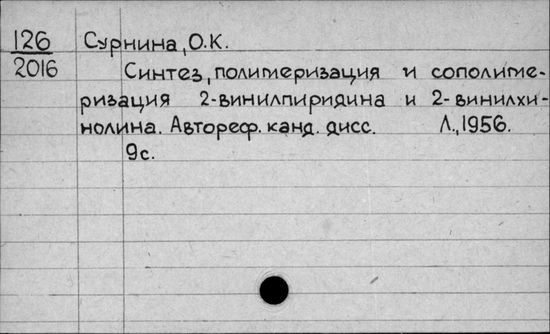 126 Сурнина, О.К.
2016 Синтез, полимеризация и сополиме-
ризация 2-винилпиридина и 2-винилхи-
нолина. Автореф. канд. дисс. Л., 1956.
9с.